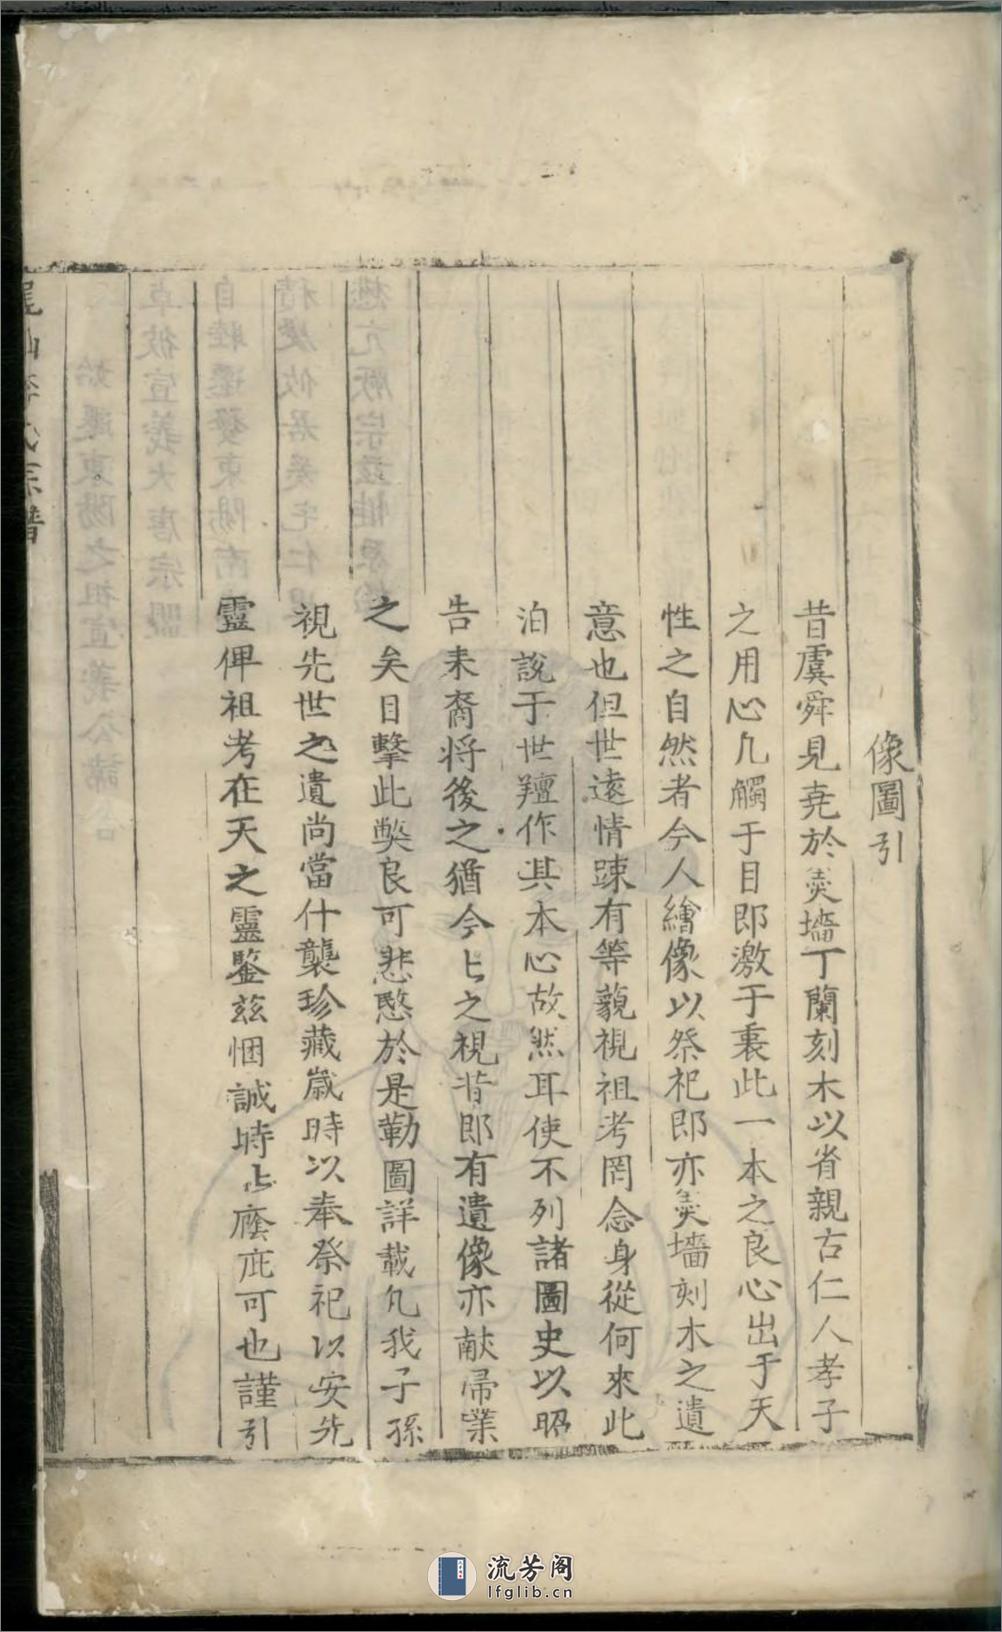 像圖引
昔虞舜見堯於羹墻丁蘭刻木以省親古仁人孝子
之用心凢觸于目即激于衷此一本之良心出于天
性之自然者今人繪像以祭祀即亦羹墻刻木之遺
意也但世遠情踈有等藐視祖考罔念身從何來此
泊說于世羶作其本心故然耳使不列諸圖史以昭
告耒裔將後之猶今上之視昔即有遺像亦献帚業
之矣目擊此獘良可悲愍於是勒圖詳載凢我子孫
視先世之遺尚當什襲珍藏歲時以奉祭祀以安先
靈俾祖考在天之靈鑒兹悃誠時上廕庇可也謹引
李氏宗譜
流芳阁
lfglib.cn